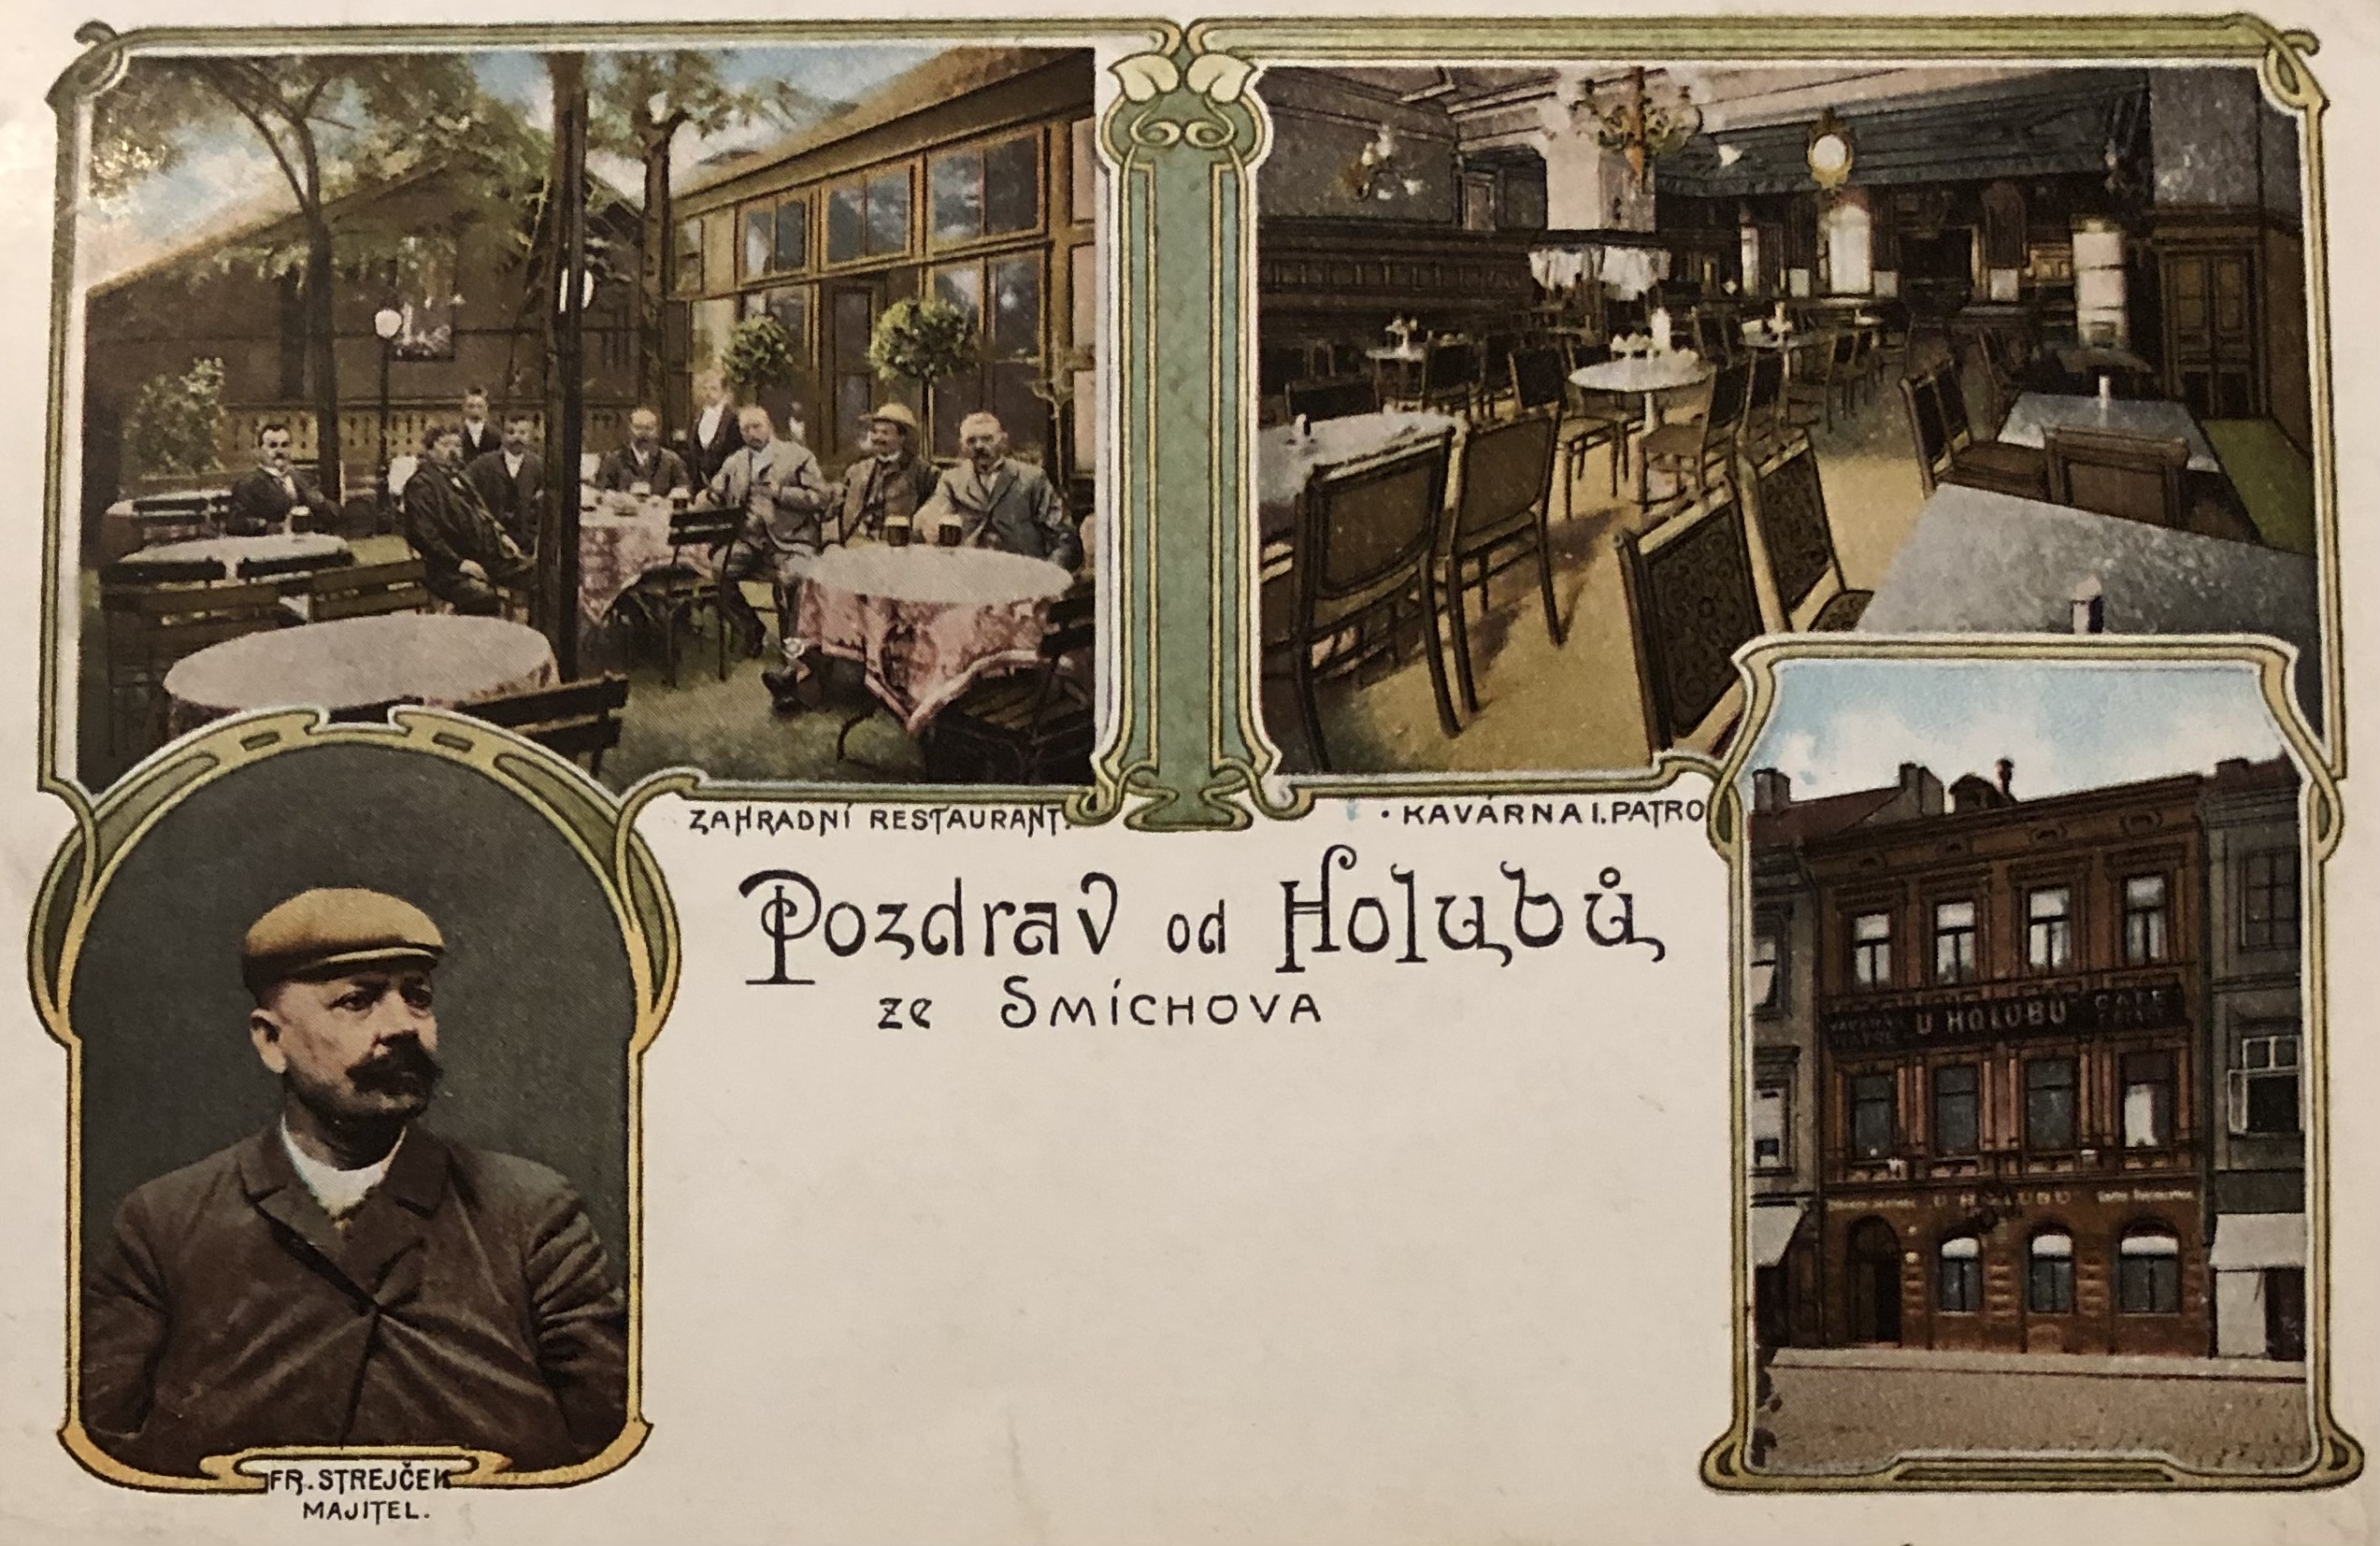 ZAHRADNÍ RESTAURANT.
· KAVÁRNA I. PATRO
Pozdrav od Holubů
ze SMÍCHOVA
U HOLUBŮ CAFE
U HOLUBŮ
FR. STREJČEK
MAJITEL.